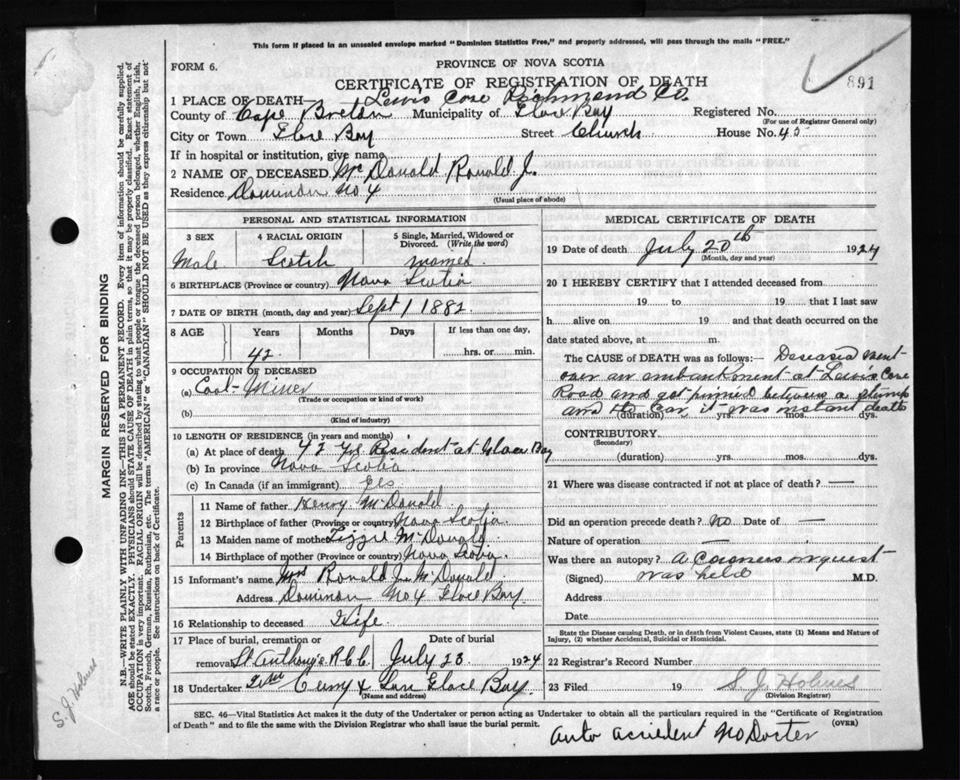 This form if placed in an unsealed envelope marked "Dominion Statistics Free," and properly addressed, will pass through the mails "FREE."
FORM 6.
PROVINCE OF NOVA SCOTIA
CERTIFICATE OF REGISTRATION OF DEATH
891
1 PLACE OF DEATH— Lewis Cove Richmond Co.
County of Cape Breton Municipality of Glace Bay Registered No.
(For use of Registrar General only)
City or Town Glace Bay Street Church House No. 45
If in hospital or institution, give name
2 NAME OF DECEASED Mc Donald Ronald J.
Residence Dominion No 4
(Usual place of abode)
PERSONAL AND STATISTICAL INFORMATION
3 SEX 4 RACIAL ORIGIN 5 Single, Married, Widowed or Divorced. (Write the word)
Male Scotch
6 BIRTHPLACE (Province or country) Nova Scotia
7 DATE OF BIRTH (month, day and year) Sept 1 1882
8 AGE Years Months Days If less than one day,
42 hrs. or min.
9 OCCUPATION OF DECEASED
(a) Coal-Miner
(Trade or occupation or kind of work)
(b)
(Kind of industry)
10 LENGTH OF RESIDENCE (in years and months)
(a) At place of death 42 Yrs Resident at Glace Bay
(b) In province Nova Scotia
(c) In Canada (if an immigrant)
Parents
11 Name of father Henry McDonald
12 Birthplace of father (Province or country) Nova Scotia
13 Maiden name of mother Lizzie McDonald
14 Birthplace of mother (Province or country) Nova Scotia
15 Informant's name Mrs Ronald J. McDonald
Address Dominion No 4 Glace Bay
16 Relationship to deceased Wife
17 Place of burial, cremation or removal St Anthony's R.C.C. Date of burial July 23 1924
18 Undertaker Curry & Son Glace Bay
(Name and address)
MEDICAL CERTIFICATE OF DEATH
19 Date of death July 20th 1924
(Month, day and year)
20 I HEREBY CERTIFY that I attended deceased from
19 to 19 that I last saw
h alive on 19 and that death occurred on
date stated above, at m.
The CAUSE OF DEATH was as follows:- Deseased went
over an embankment at Lewis Cove
Road and got pinned between a stump
and the Car, it was instant death
(duration) yrs. mos. dys.
CONTRIBUTORY.
(Secondary)
(duration) yrs. mos. dys.
21 Where was disease contracted if not at place of death? —
Did an operation precede death? No Date of —
Nature of operation —
Was there an autopsy? A Coroners inquest
(Signed) was held M.D.
Address
Date
State the Disease causing Death, or in death from Violent Causes, state (1) Means and Nature of Injury, (2) whether Accidental, Suicidal or Homicidal.
22 Registrar's Record Number
23 Filed 19 S. J. Holmes
(Division Registrar)
SEC. 46—Vital Statistics Act makes it the duty of the Undertaker or person acting as Undertaker to obtain all the particulars required in the "Certificate of Registration of Death" and to file the same with the Division Registrar who shall issue the burial permit.
(OVER)
auto accident No Doctor
MARGIN RESERVED FOR BINDING
N.B.—WRITE PLAINLY WITH UNFADING INK—THIS IS A PERMANENT RECORD. Every item of information should be carefully supplied.
AGE should be stated EXACTLY. PHYSICIANS should STATE CAUSE OF DEATH in plain terms, so that it may be properly classified. Exact statement of
OCCUPATION is very important. RACIAL ORIGIN will be described by stating to what people or tongue the deceased person belonged, whether English, Irish,
Scotch, French, German, Russian, Ruthenian, etc. The terms "AMERICAN" or "CANADIAN" SHOULD NOT BE USED as they express citizenship but not
a race or people. See instructions on back of Certificate.
S. J. Holmes